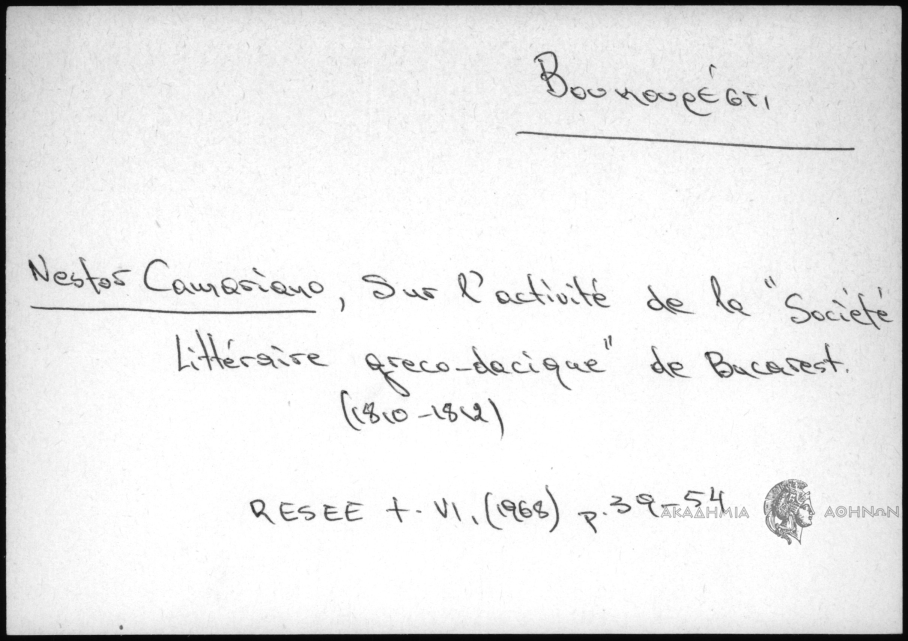 Βουκουρέστι
Nestor Camariano, Sur l'activité de la "Société
Littéraire greco-dacique" de Bucarest.
(1810-1812)
RESEE t. VI, (1968) p. 39-54
ΑΚΑΔΗΜΙΑ ΑΘΗΝΩΝ